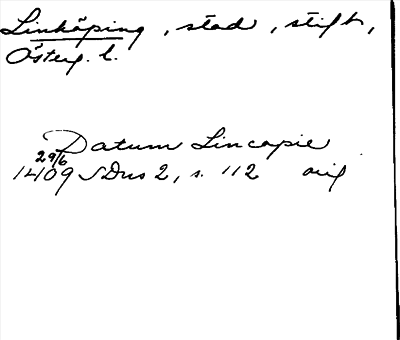 Linköping, stad, stift,
Österg. l.
Datum Lincopie
29/6
1409 SDns 2, s. 112 orig